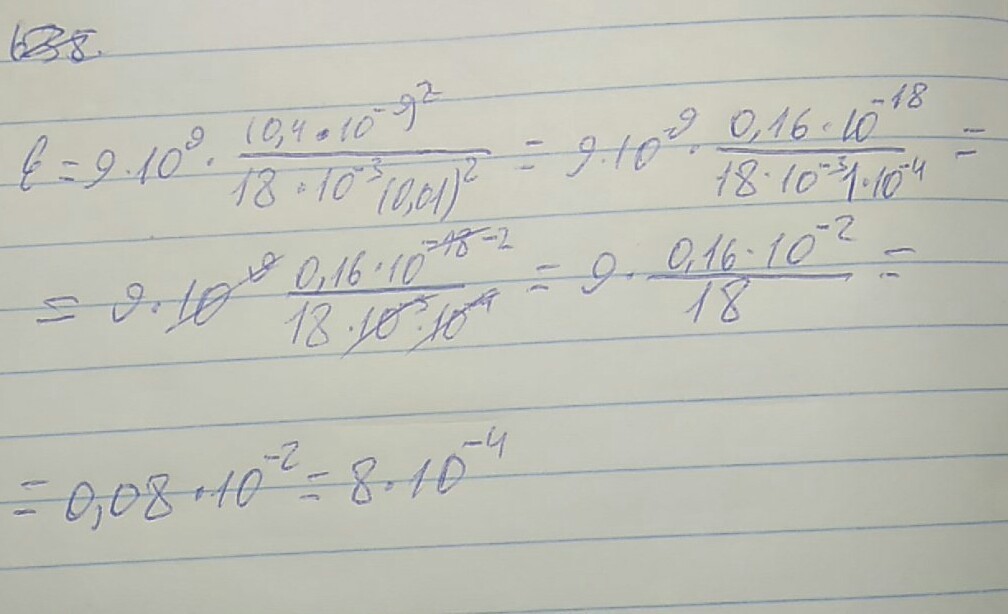 638.
ε = 9·10⁹· (0,4·10⁻⁹)² / 18·10⁻³(0,01)² = 9·10⁹· 0,16·10⁻¹⁸ / 18·10⁻³1·10⁻⁴ =
= 9·10⁹ 0,16·10⁻¹⁸⁻² / 18·10⁻³·10⁻⁴ = 9· 0,16·10⁻² / 18 =
= 0,08·10⁻² = 8·10⁻⁴